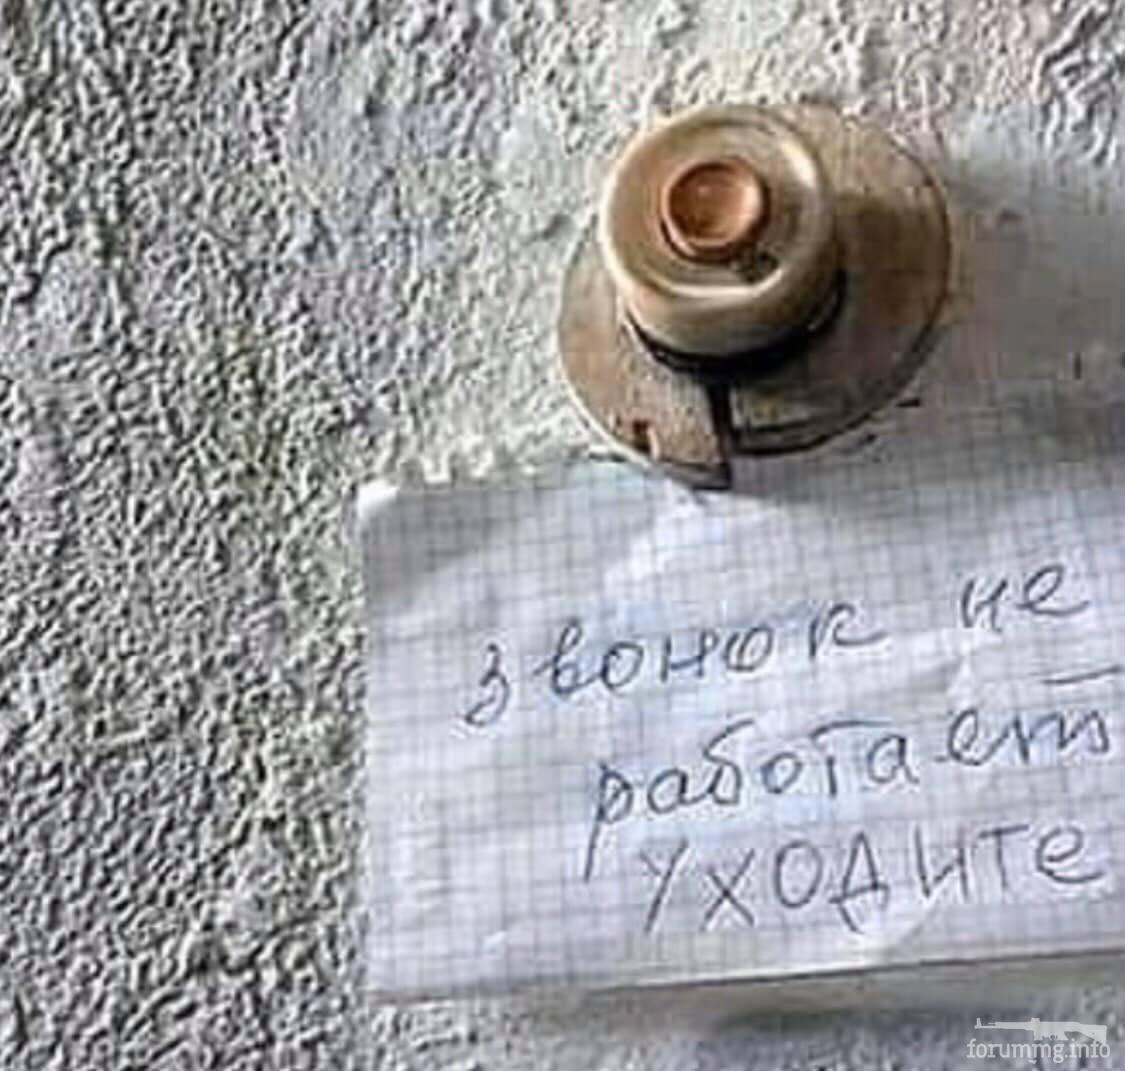 звонок не
работает
уходите
forummg.info